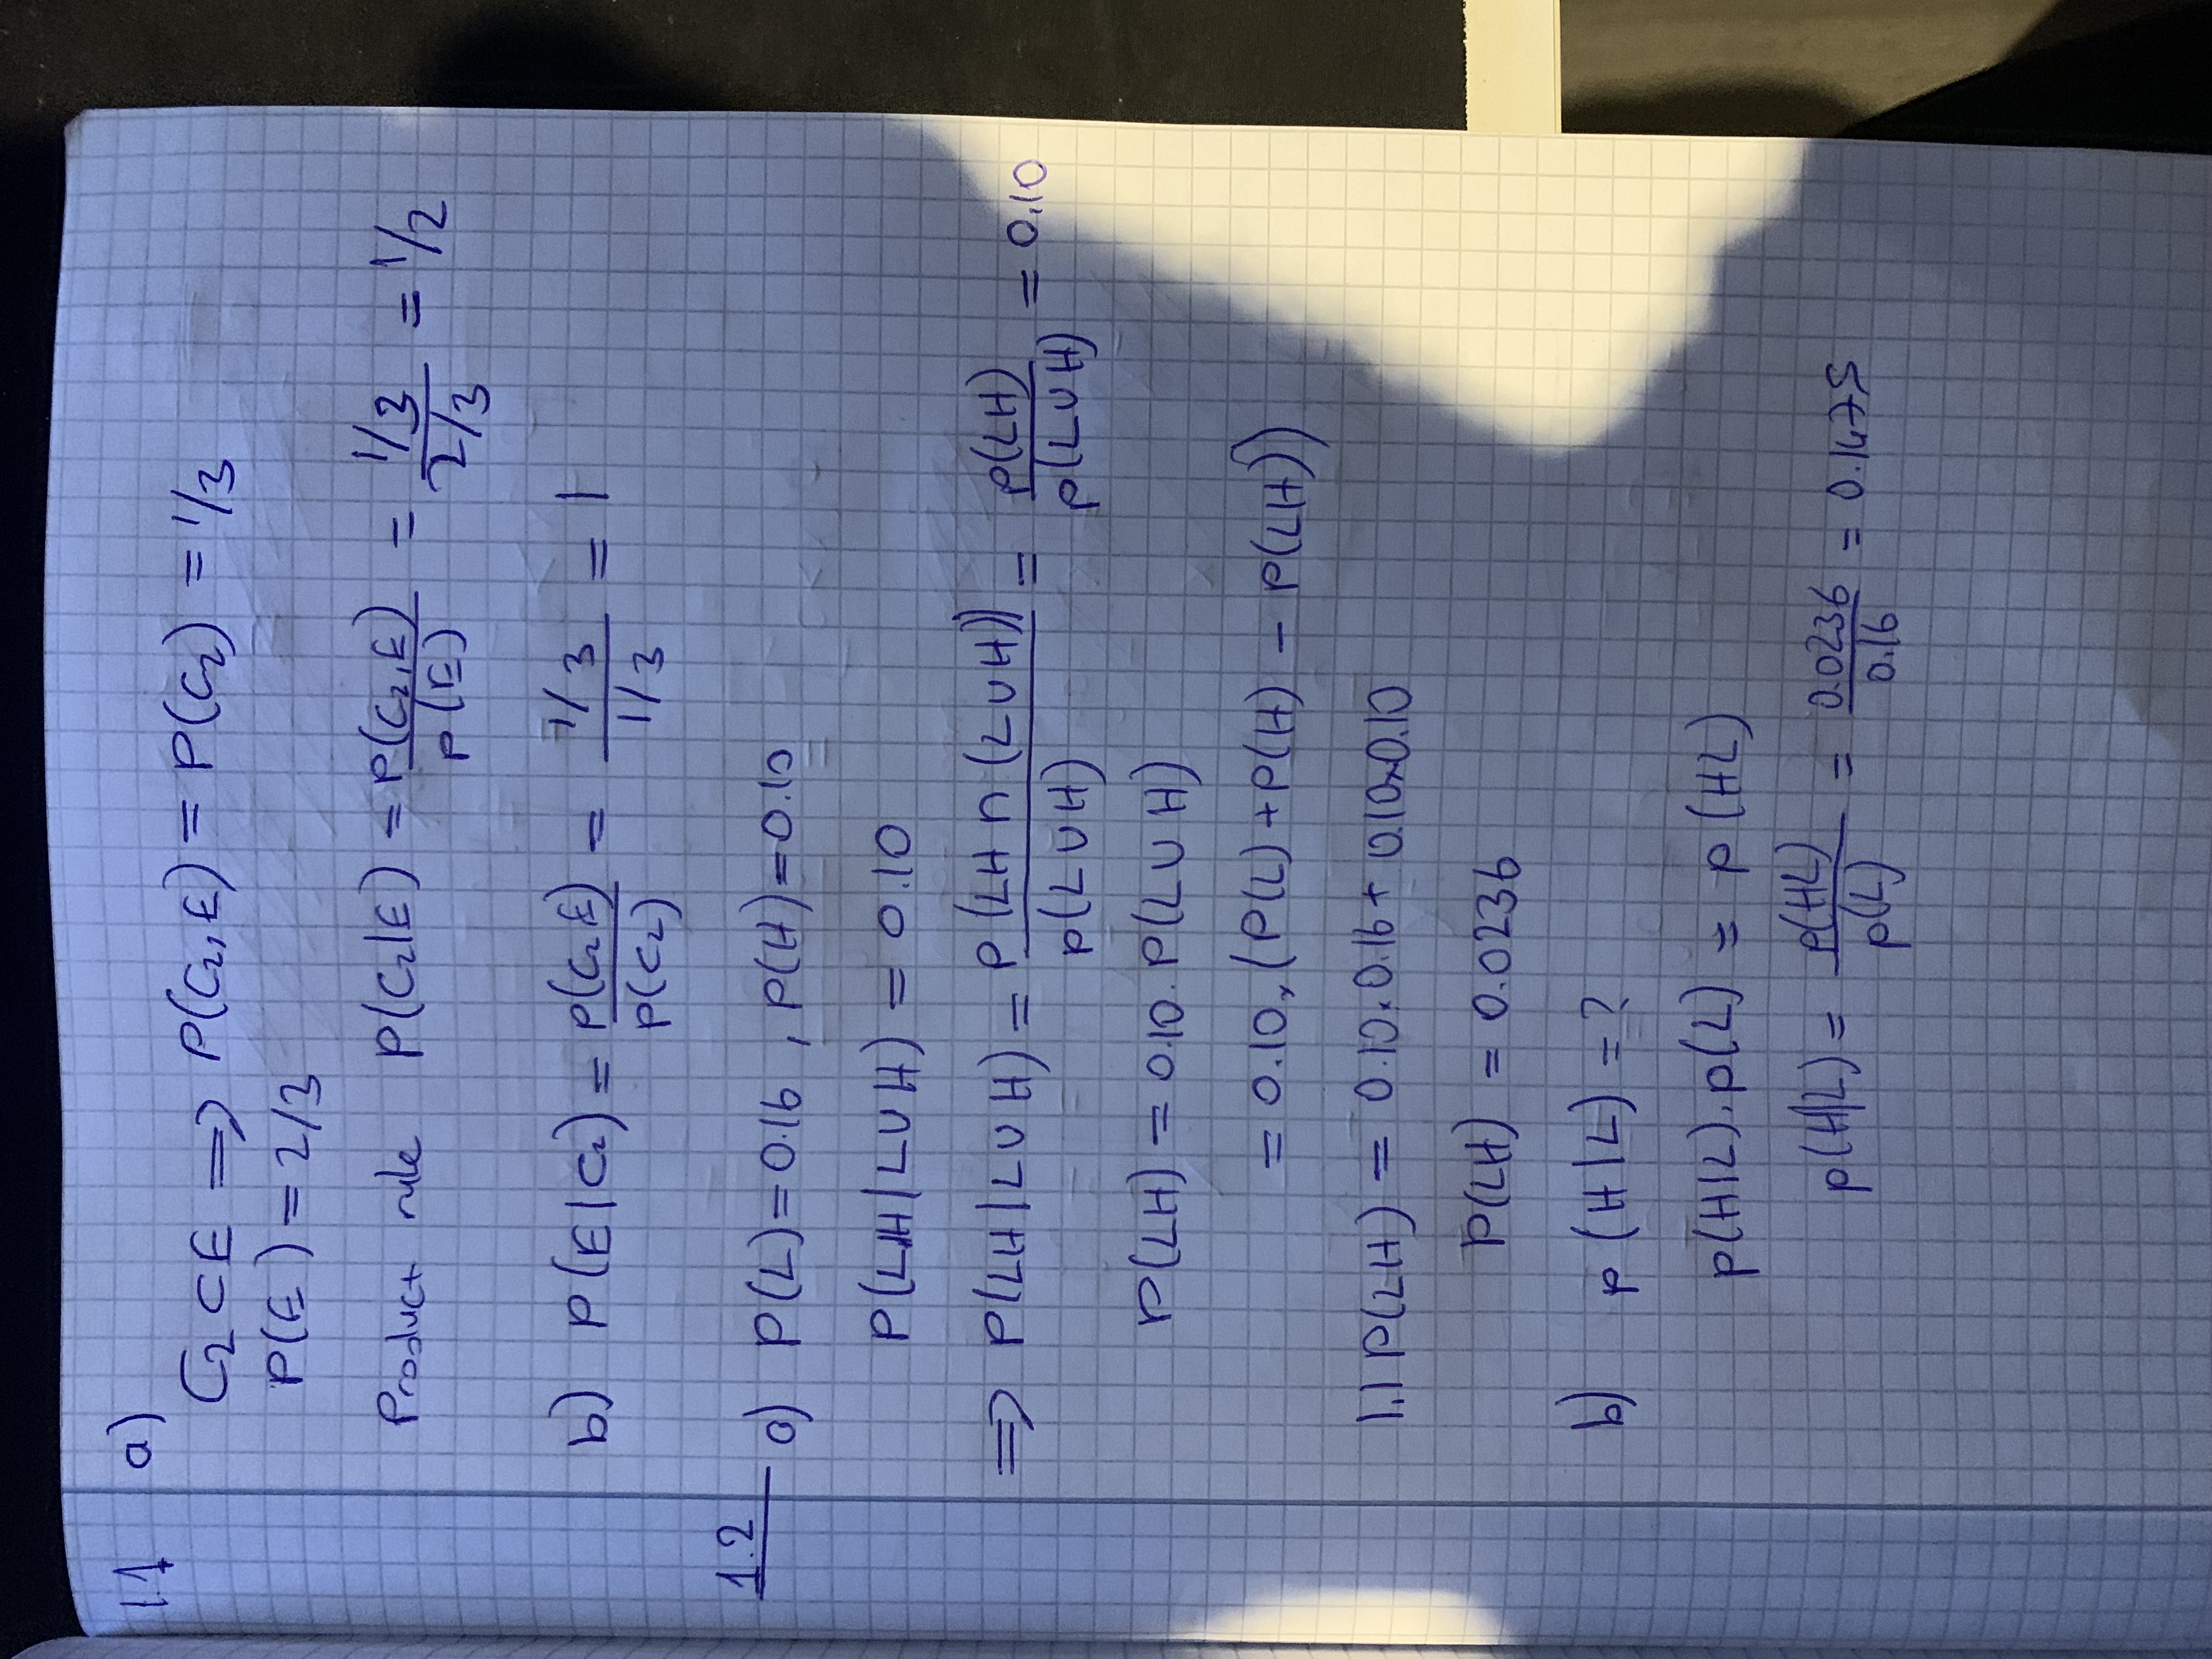 1.1 a)
C₂ ⊂ E ⟹ P(C₂,E) = P(C₂) = 1/3
P(E) = 2/3
Product rule P(C₂|E) = P(C₂,E)/P(E) = (1/3)/(2/3) = 1/2
b) P(E|C₂) = P(C₂E)/P(C₂) = (1/3)/(1/3) = 1
1.2
a) P(L)=0.16 , P(H)=0.10
P(LH|L∪H) = 0.10
⟹ P(LH|L∪H) = P(LH∩(L∪H))/P(L∪H) = P(LH)/P(L∪H) = 0.10
P(LH) = 0.10 . P(L∪H)
= 0.10 . (P(L)+P(H) – P(LH))
1.1 P(LH) = 0.10 . 0.16 + 0.10x0.10
P(LH) = 0.0236
b) P(H|L) = ?
P(H|L) . P(L) = P(HL)
P(H|L) = P(HL)/P(L) = 0.0236/0.16 = 0.1475